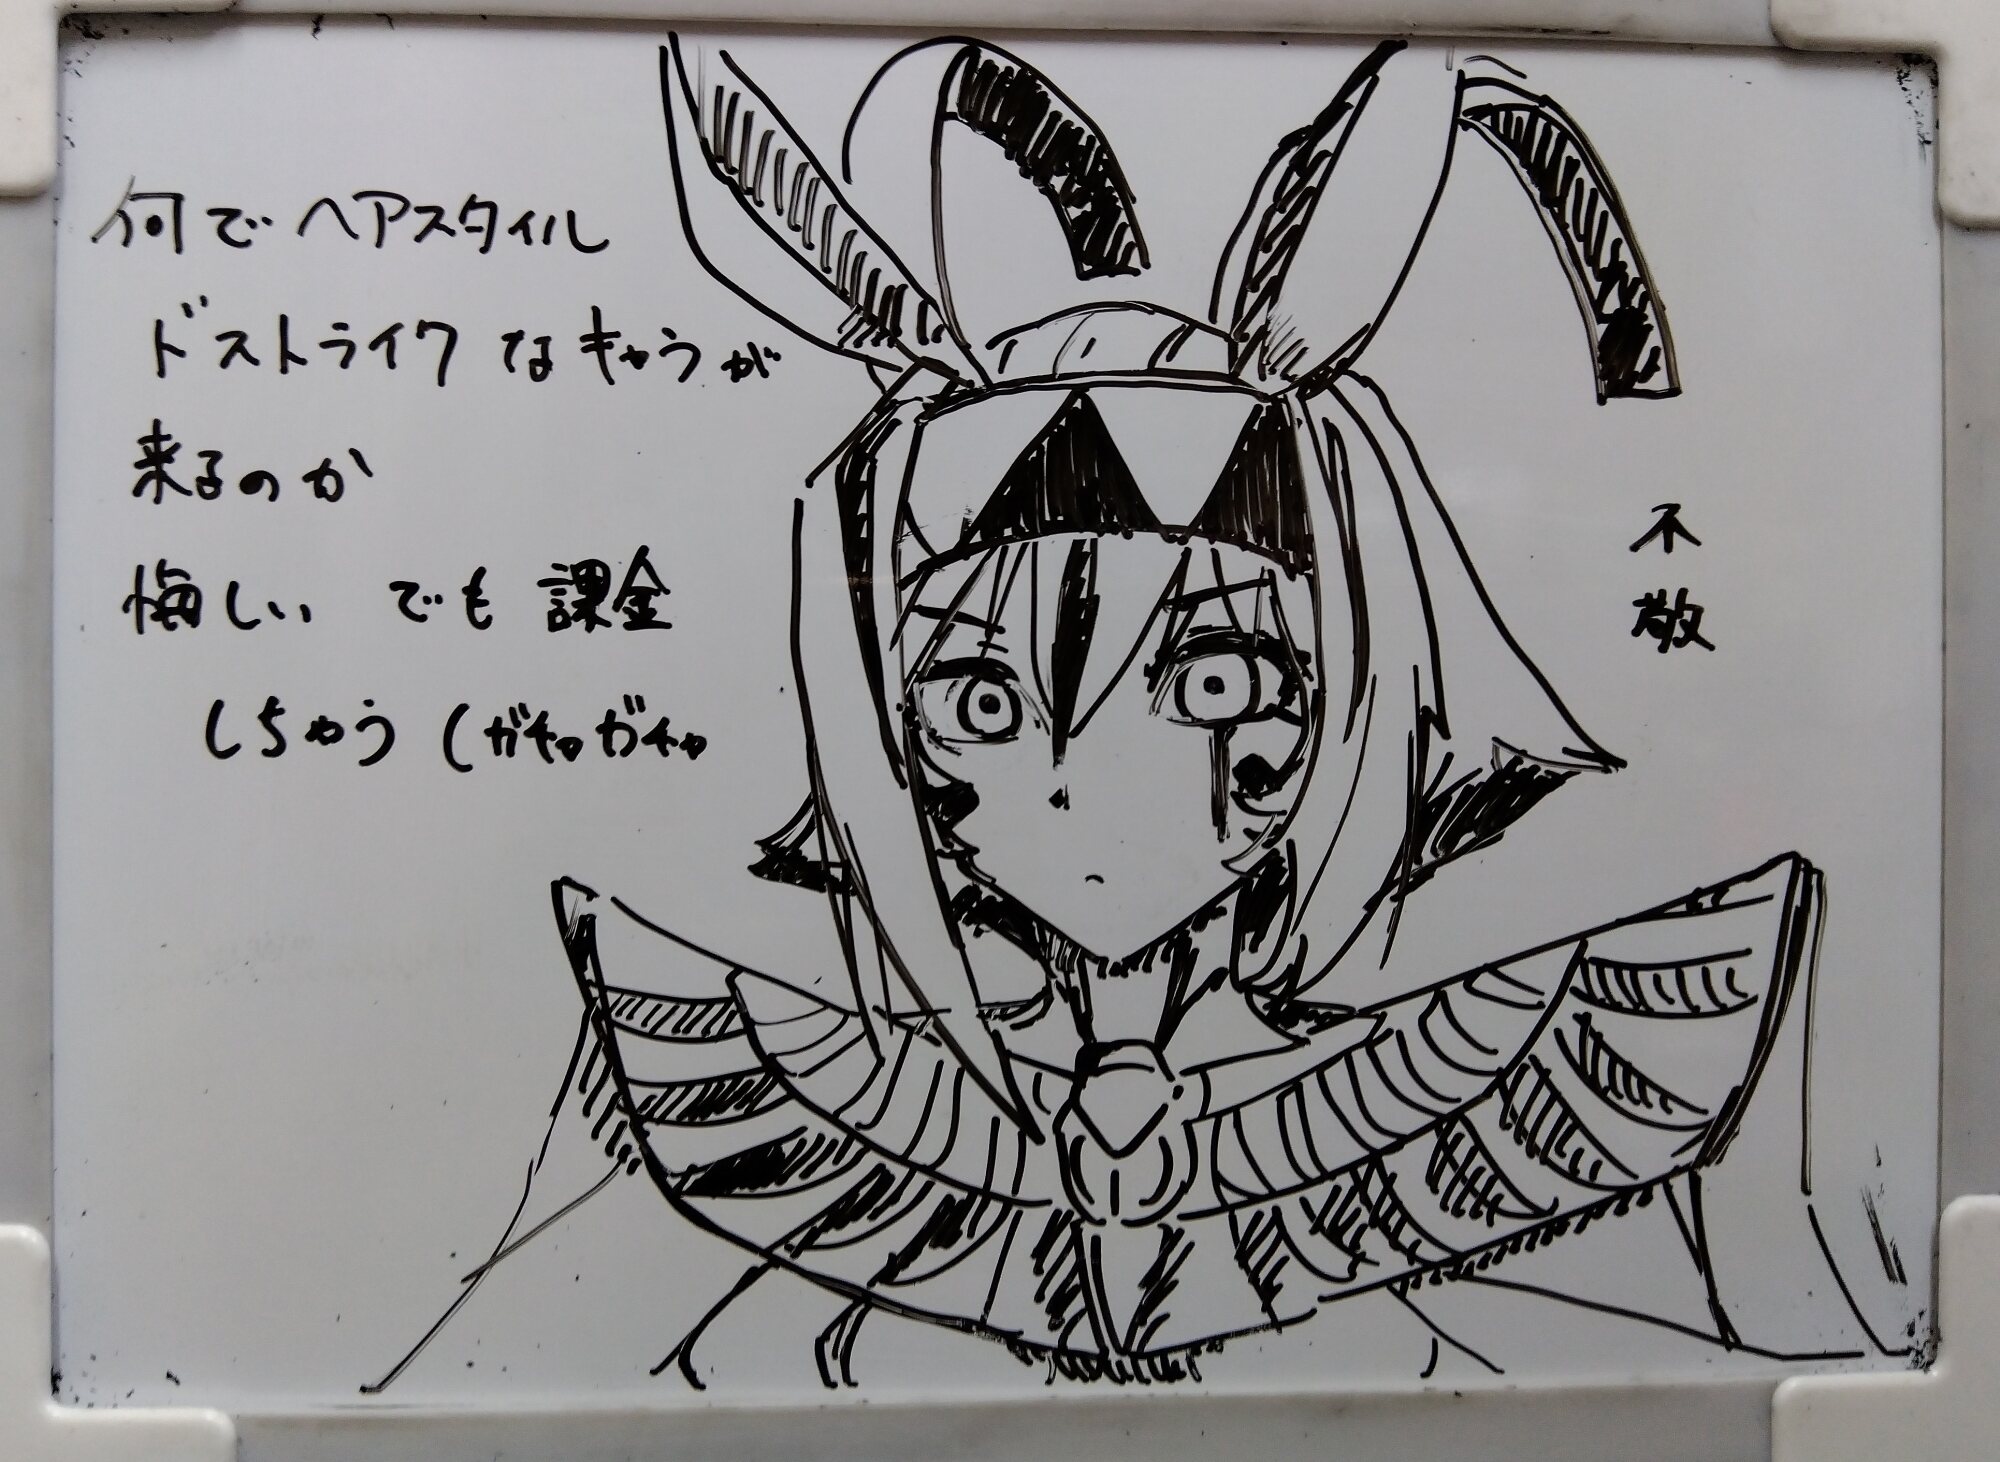 何でヘアスタイル
ドストライクなキャラが
来るのか
悔しい でも 課金
しちゃう (ガチャガチャ
不敬